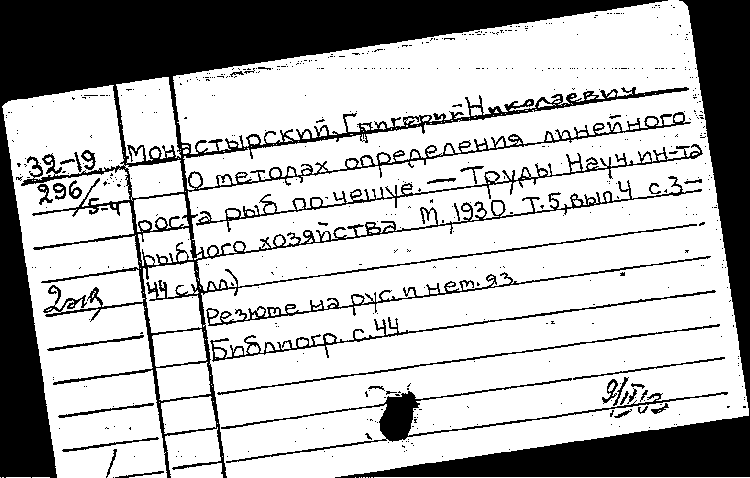 32-19
296/5-4
2 экз
Монастырский, Григорий Николаевич
О методах определения линейного
роста рыб по чешуе. — Труды Науч. ин-та
рыбного хозяйства. М., 1930. Т.5, вып.4 с.3-
44 с илл.)
Резюме на рус. и нем. яз.
Библиогр. с.44.